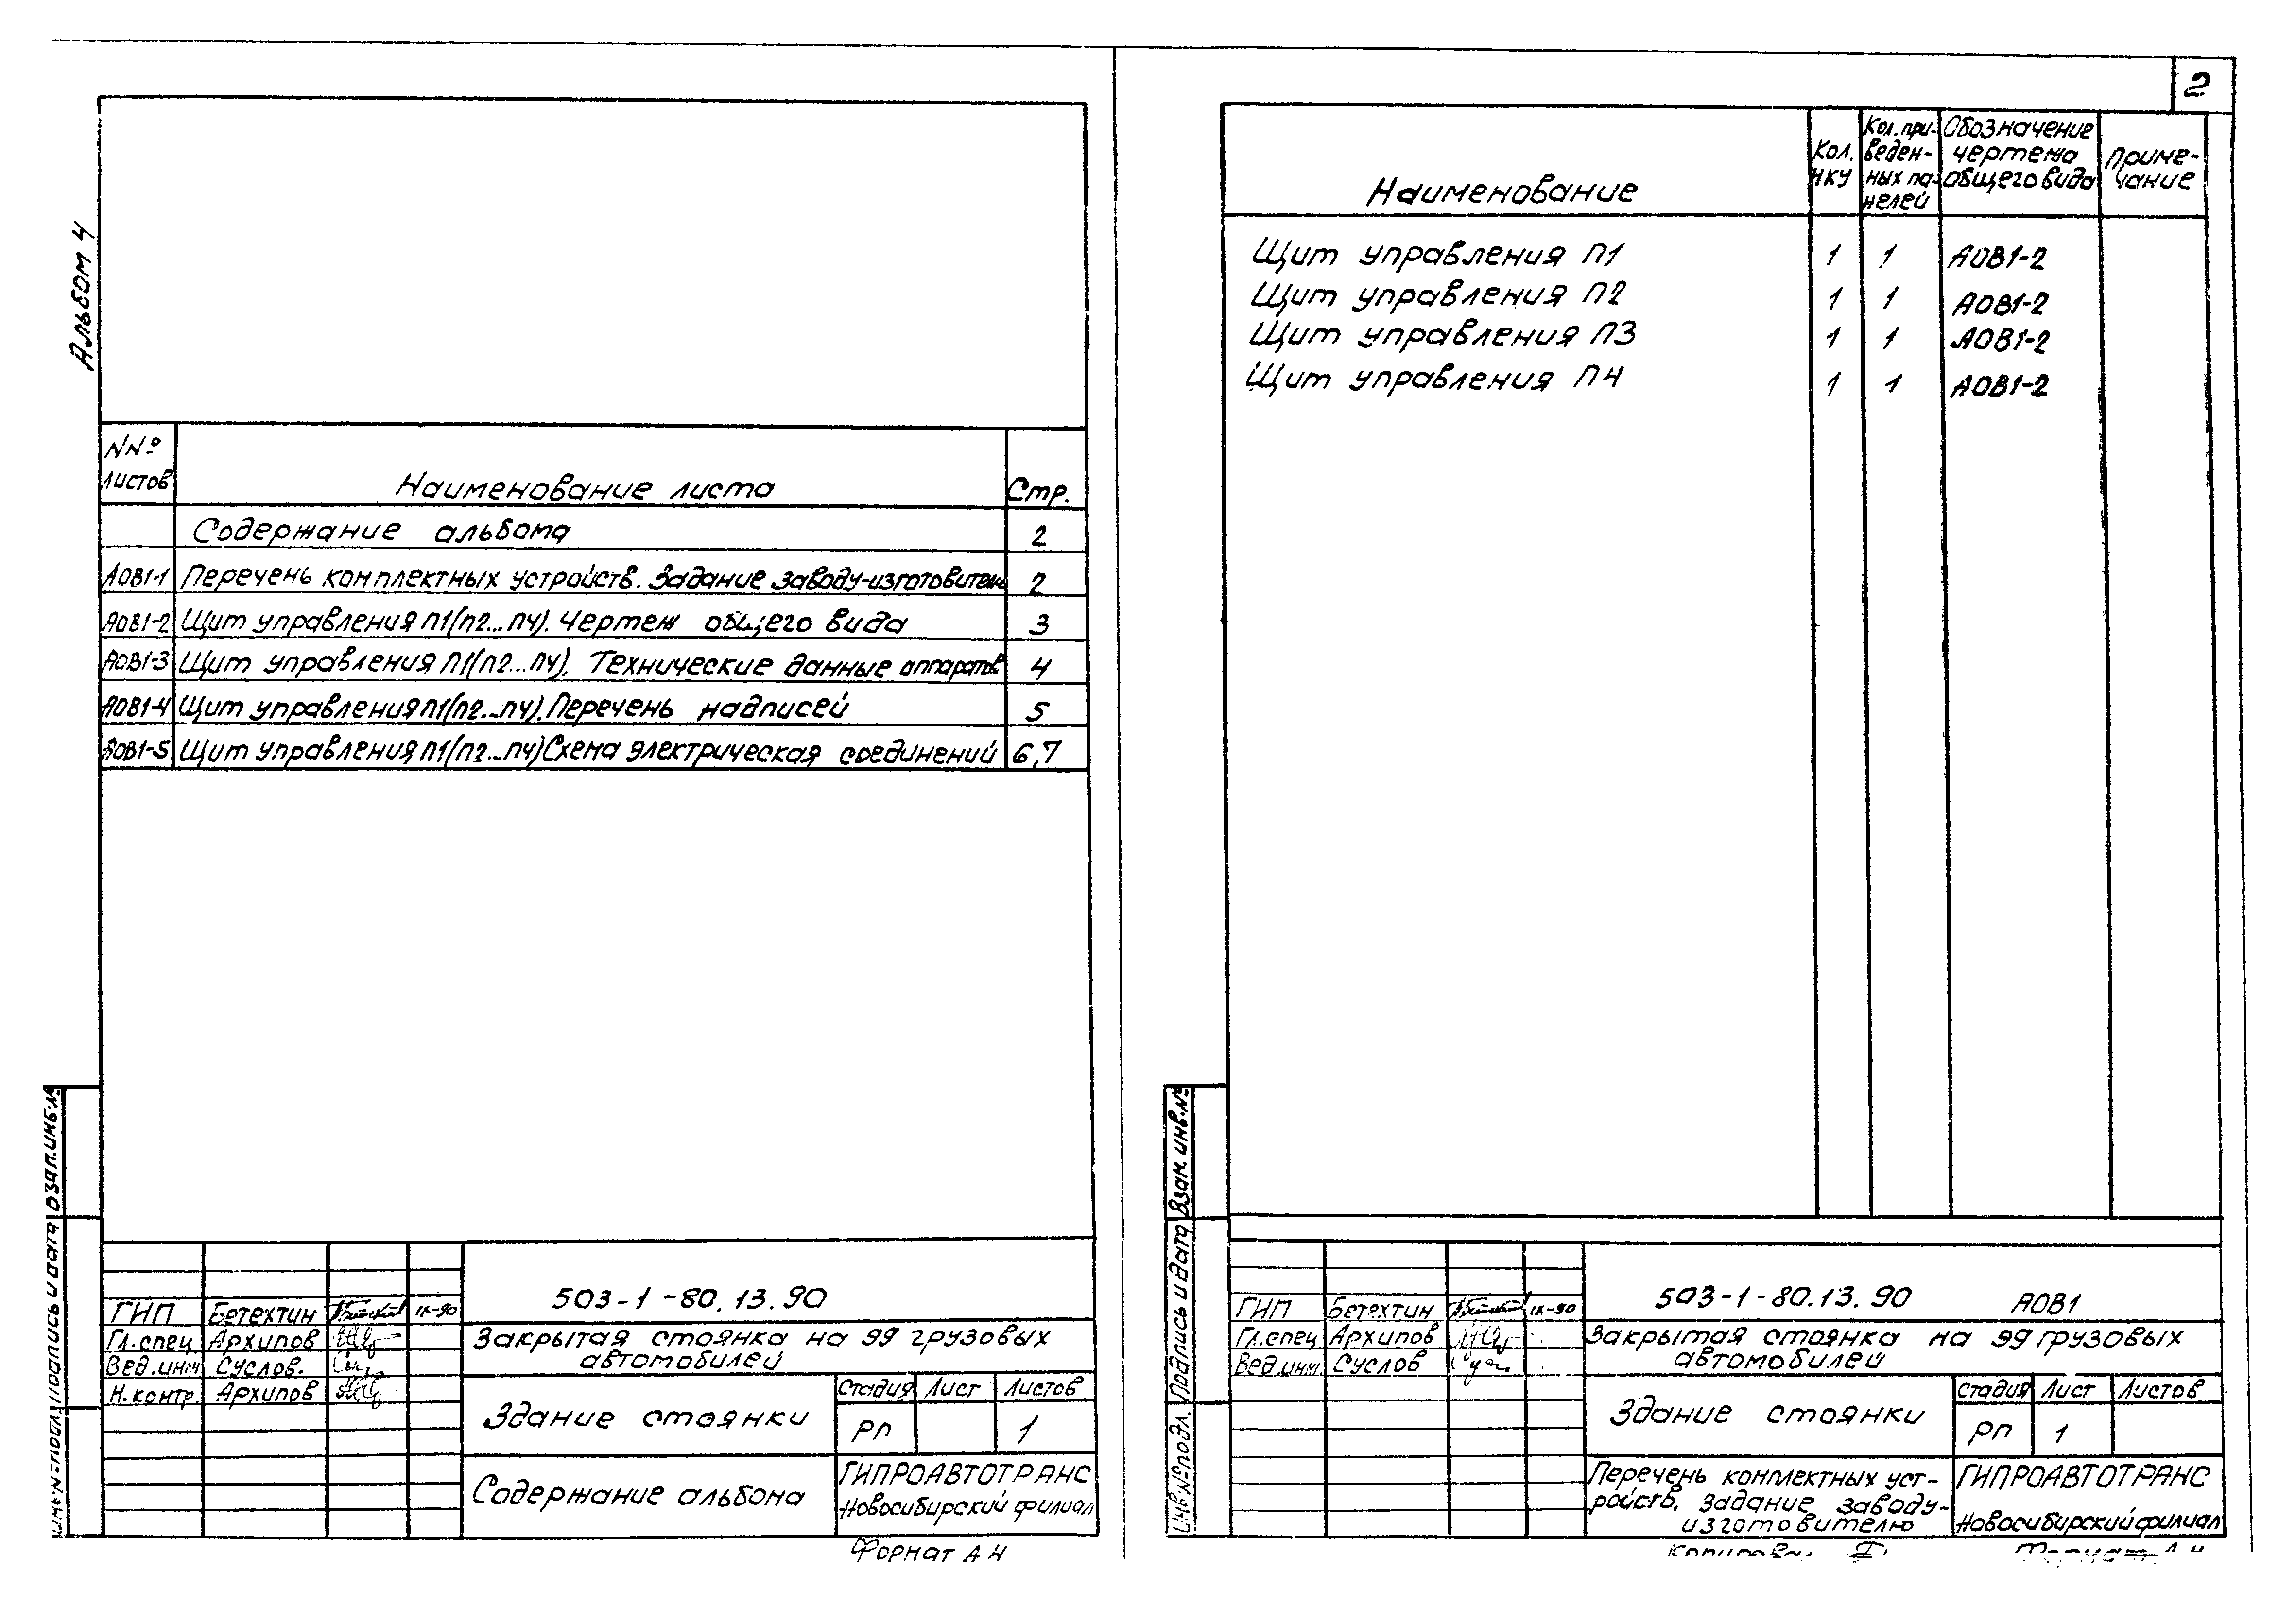 2
Альбом 4
NNº листов Наименование листа Стр.
Содержание альбома 2
АОВ1-1 Перечень комплектных устройств. Задание заводу-изготовителю 2
АОВ1-2 Щит управления П1(П2...П4). Чертеж общего вида 3
АОВ1-3 Щит управления П1(П2...П4). Технические данные аппаратов 4
АОВ1-4 Щит управления П1(П2...П4). Перечень надписей 5
АОВ1-5 Щит управления П1(П2...П4) Схема электрическая соединений 6,7
Взам.инв.№
Подпись и дата
Инв.№ подл.
503-1-80.13.90
ГИП Бетехтин IX-90
Гл.спец. Архипов
Вед.инж Суслов.
Н.контр. Архипов
Закрытая стоянка на 99 грузовых
автомобилей
Здание стоянки
Стадия Лист Листов
РП 1
Содержание альбома
ГИПРОАВТОТРАНС
Новосибирский филиал
Формат А4
Наименование
Кол. НКУ
Кол. при-
веден-
ных па-
нелей
Обозначение
чертежа
общего вида
Приме-
чание
Щит управления П1 1 1 АОВ1-2
Щит управления П2 1 1 АОВ1-2
Щит управления П3 1 1 АОВ1-2
Щит управления П4 1 1 АОВ1-2
Взам. инв.№
Подпись и дата
Инв.№ подл.
503-1-80.13.90 АОВ1
ГИП Бетехтин IX-90
Гл.спец Архипов
Вед.инж. Суслов
Закрытая стоянка на 99 грузовых
автомобилей
Здание стоянки
Стадия Лист Листов
РП 1
Перечень комплектных уст-
ройств. Задание заводу-
изготовителю
ГИПРОАВТОТРАНС
Новосибирский филиал
Копировал
Формат А4